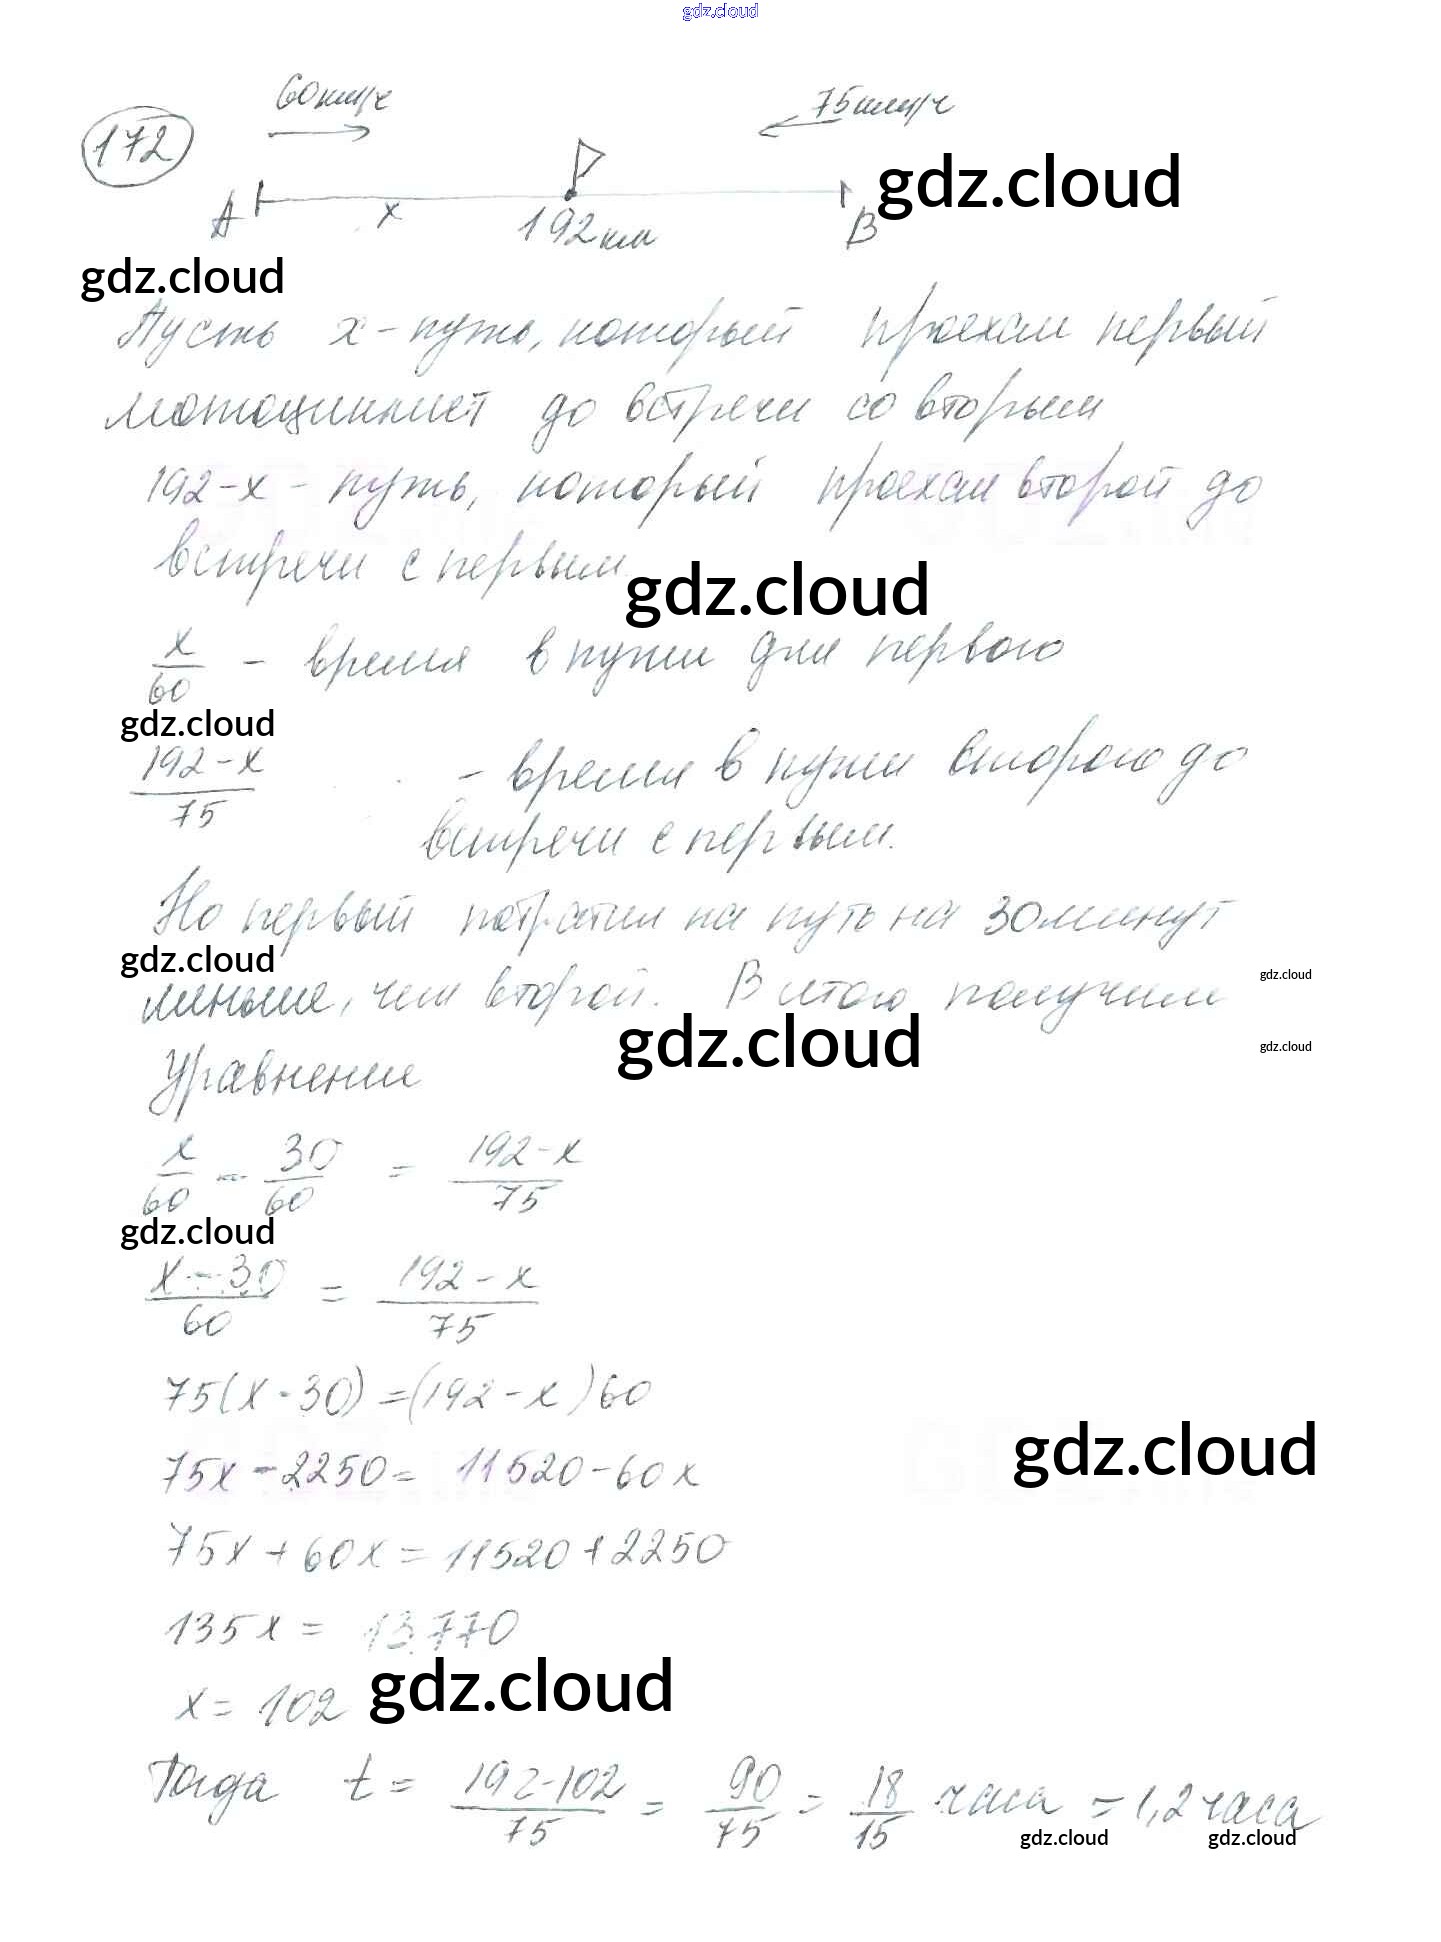 gdz.cloud
60км/ч
75км/ч
172
gdz.cloud
A x 192км B
gdz.cloud
Пусть x - путь, который проехал первый
мотоциклист до встречи со вторым
192-x - путь, который проехал второй до
встречи с первым.
gdz.cloud
x/60 - время в пути для первого
gdz.cloud
192-x/75 - время в пути второго до
встречи с первым.
Но первый потратил на путь на 30 минут
gdz.cloud
gdz.cloud
меньше, чем второй. В итоге получим
gdz.cloud
gdz.cloud
Уравнение
x/60 - 30/60 = 192-x/75
gdz.cloud
x-30/60 = 192-x/75
75(x-30)=(192-x)60
gdz.cloud
75x-2250=11520-60x
75x+60x=11520+2250
135x = 13770
gdz.cloud
x = 102
Тогда t = 192-102/75 = 90/75 = 18/15 часа = 1,2 часа
gdz.cloud gdz.cloud